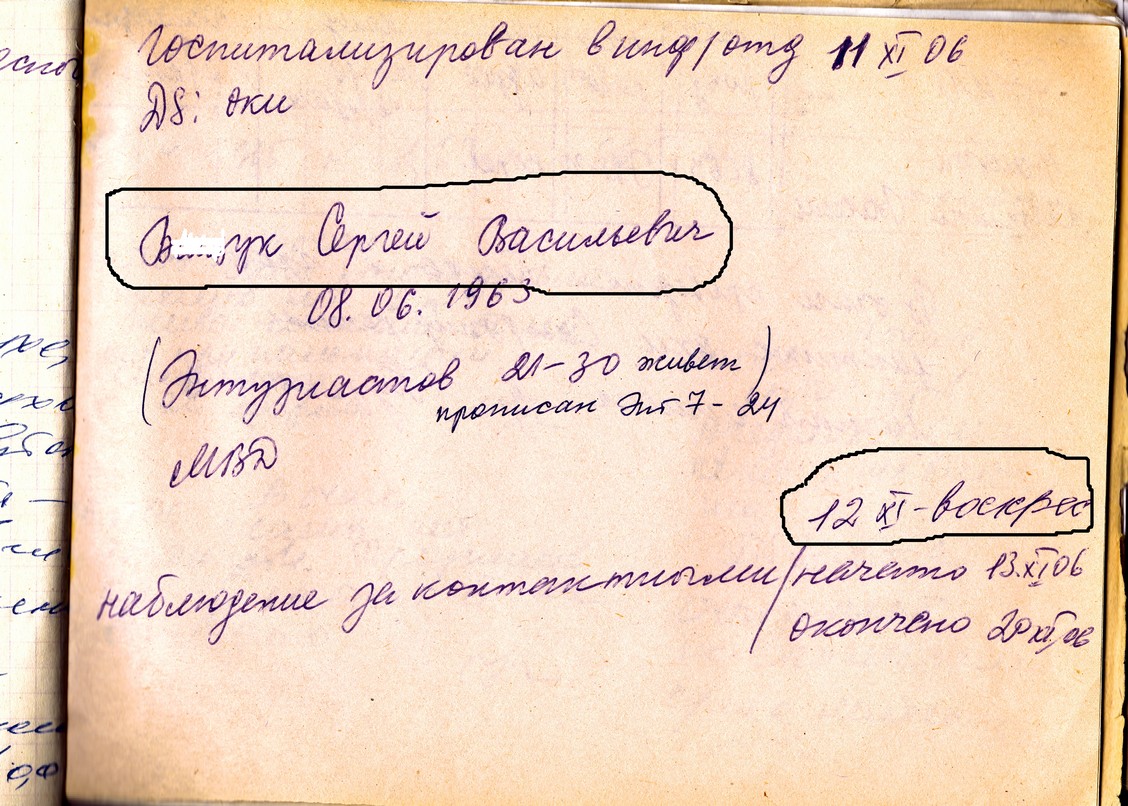 Госпитализирован в инф/отд 11 XI 06
DS: ОКИ
Сергей Васильевич
08.06.1963
(Энтузиастов 21-30 живет)
прописан Энт 7-24
МВД
12 XI-воскрес
наблюдение за контактными/начато 13.XI 06
окончено 20 XI, 06